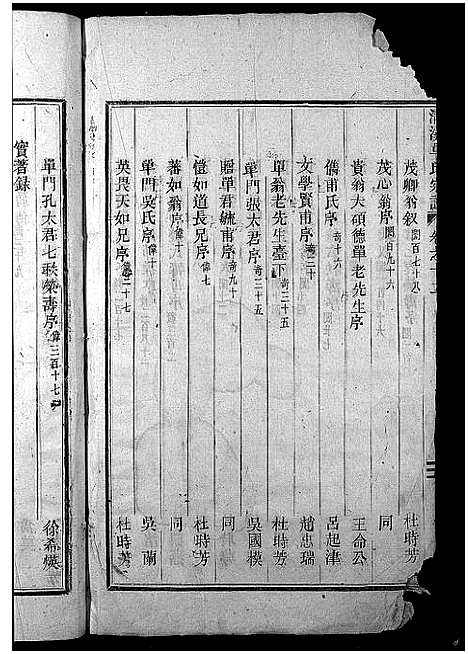 茂卿翁叙 閏百七十八 杜時芳
茂心翁序 閏百九十六 同
貴翁夫碩德單老先生序 王命公
儁甫氏序 奇十六 呂起津
文學賢甫序 奇二十 趙忠瑞
單翁老先生臺下 奇三十五 杜時芳
單門張太君序 奇三十五 吳國模
贈單君毓甫序 奇九十 同
愷如道長兄序 偉七 杜時芳
蕃如翁序 偉十 同
單門吳氏序 吳蘭
英畏天如兄序 二十七 杜時芳
單門孔太君七袠榮壽序 偉三百十七 徐希煐
寳著録